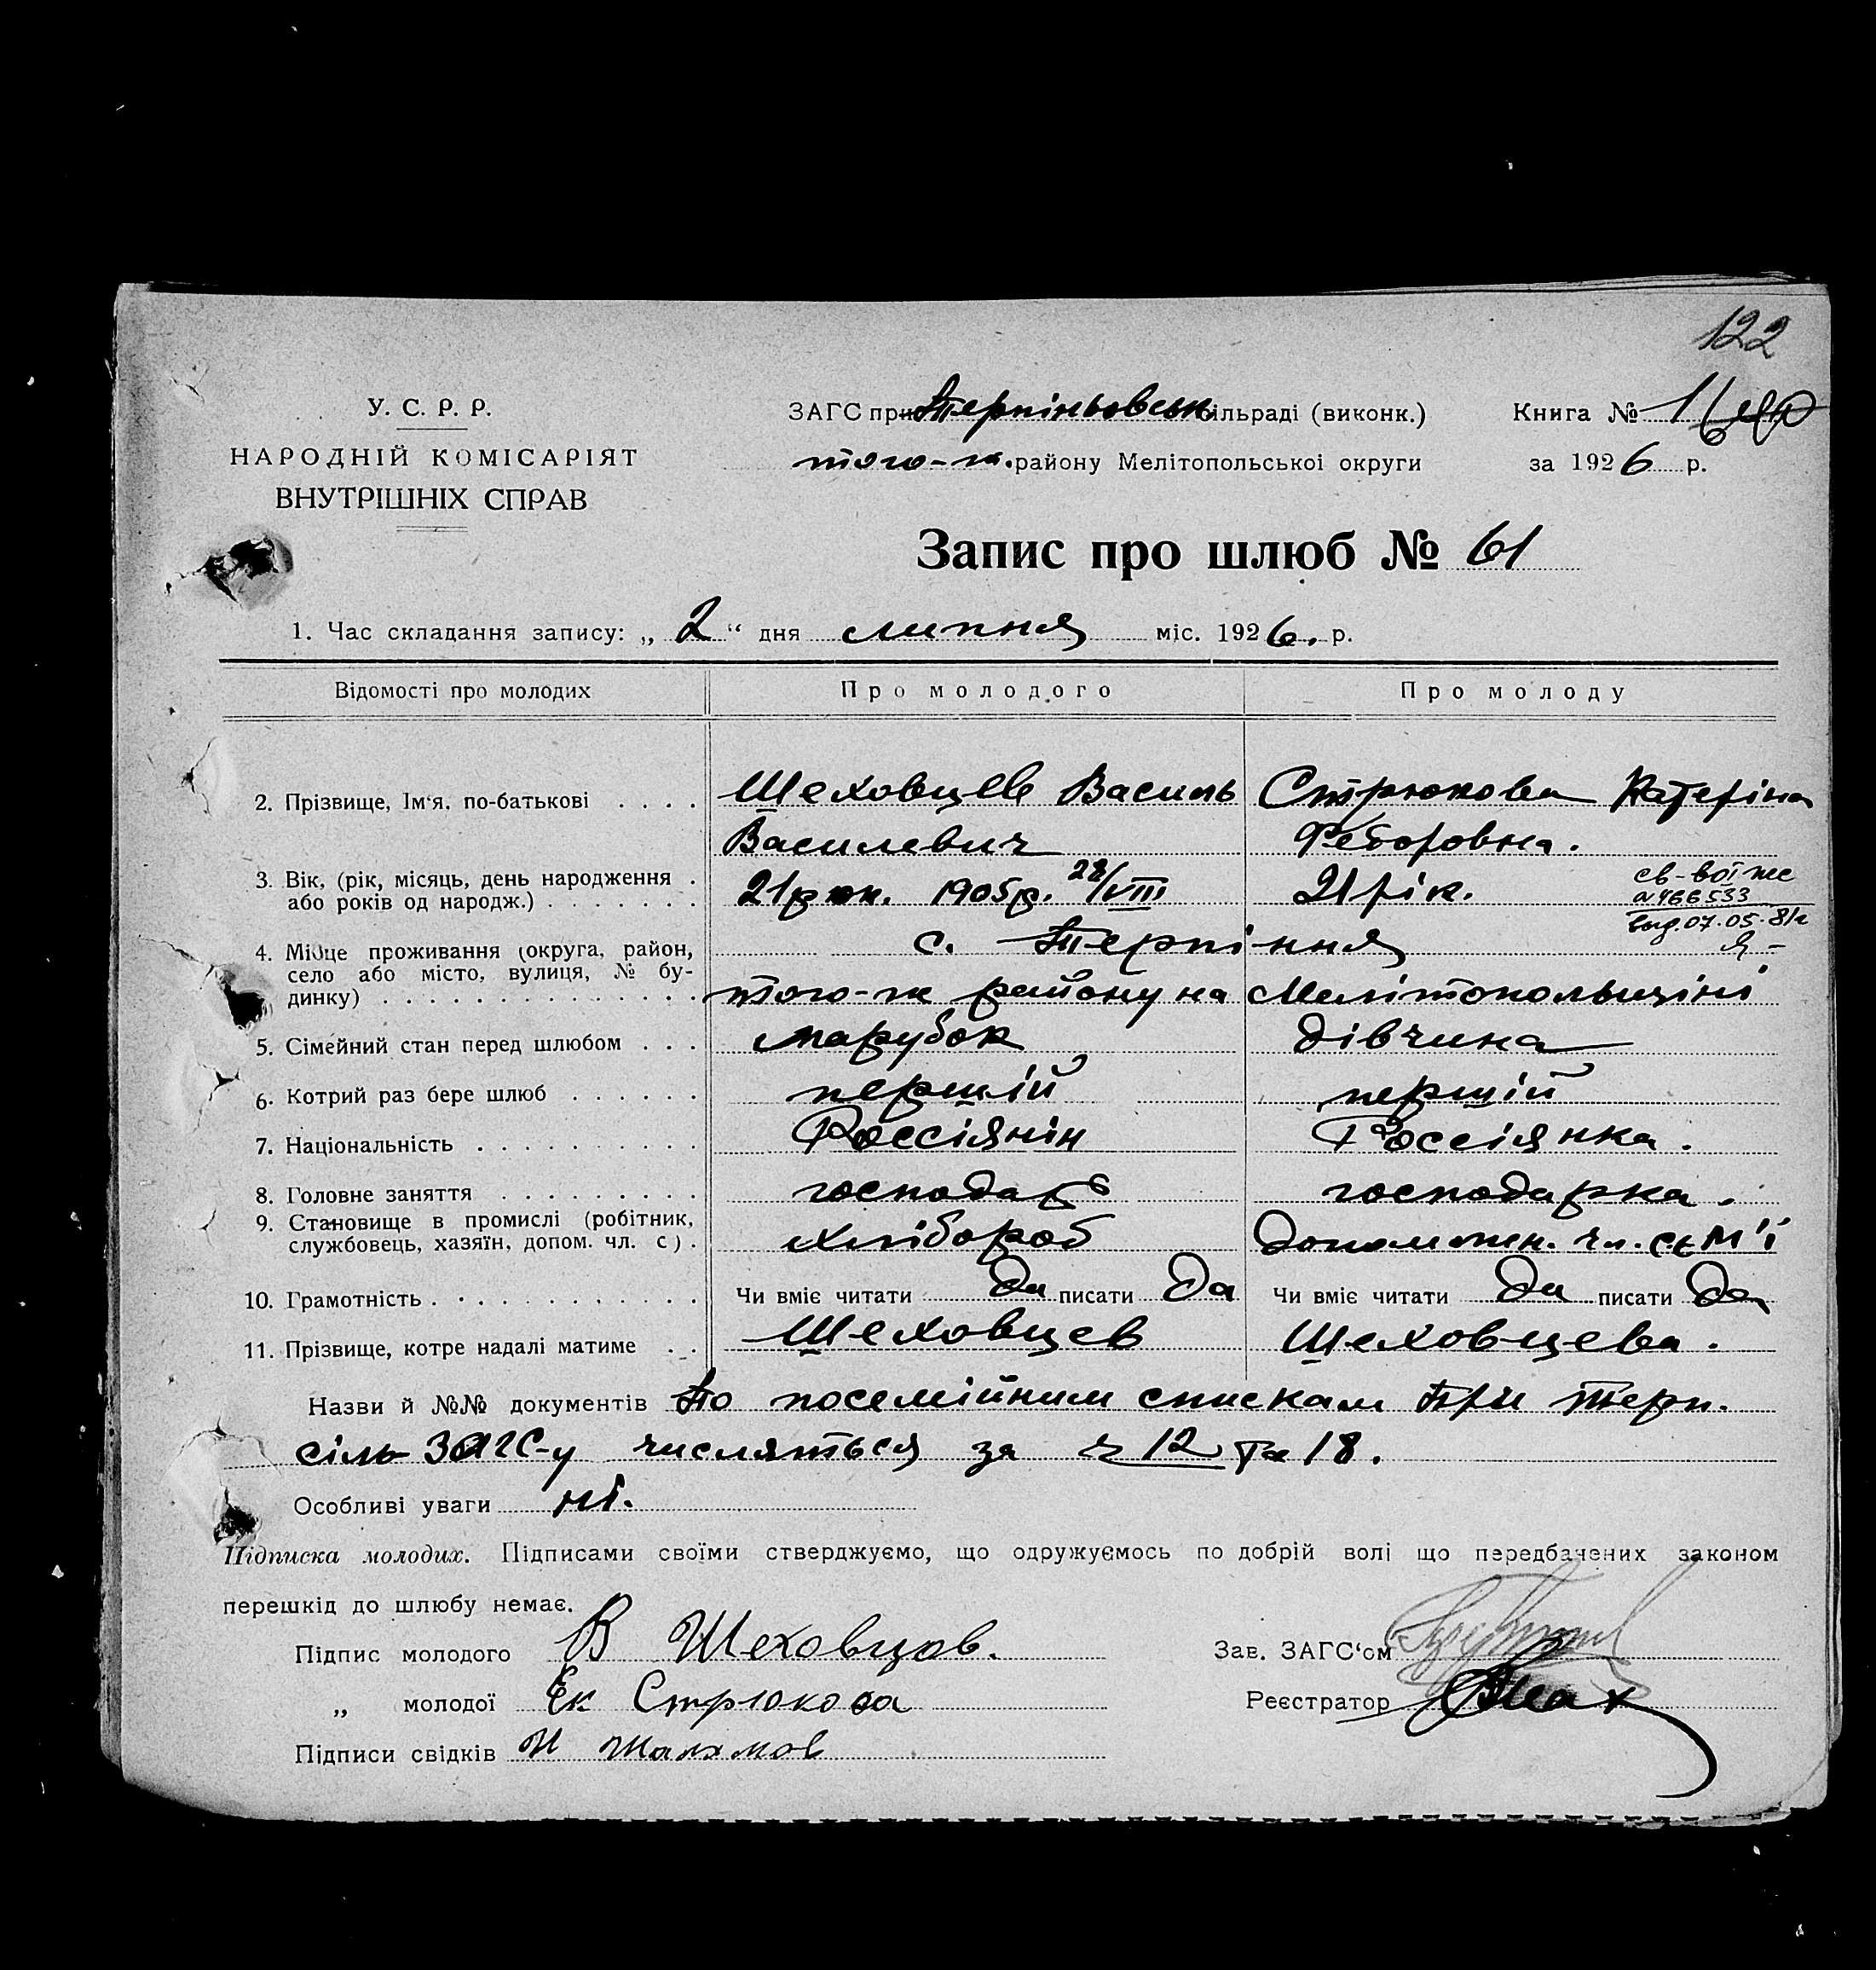 122
У. С. Р. Р.
НАРОДНІЙ КОМІСАРІЯТ
ВНУТРІШНІХ СПРАВ
ЗАГС при Терпіньовськ. сільраді (виконк.)
того-ж. району Мелітопольської округи
Книга № 1
за 1926 р.
Запис про шлюб № 61
1. Час складання запису: „ 2 “ дня липня міс. 1926. р.
Відомості про молодих Про молодого Про молоду
2. Прізвище, Ім'я, по-батькові . . . . Шеховцев Василь Стрюкова Катеріна
Василевич Федоровна.
3. Вік, (рік, місяць, день народження . або років од народж.) . . . . . . . 21 рок. 1905р. 28/VIII 21 рік.
св-во І же
№ 466533
выд. 07.05.81г
4. Місце проживання (округа, район, с. Терпіння
село або місто, вулиця, № бу-
динку) . . . . . . . . . . . . . . того-ж району на Мелітопольщіні
5. Сімейний стан перед шлюбом . . . парубок дівчина
6. Котрий раз бере шлюб . . . . . . першій першій
7. Національність . . . . . . . . . . Россіянін Россіянка.
8. Головне заняття . . . . . . . . . господарь господарка.
9. Становище в промислі (робітник,
службовець, хазяїн, допом. чл. с) . хлібороб допоможн. чл. сем'ї
10. Грамотність . . . . . . . . . . . . Чи вміє читати Да писати Да Чи вміє читати Да писати Да
11. Прізвище, котре надалі матиме . . Шеховцев Шеховцева.
Назви й №№ документів По посемійним спискам при Терп.
сіль ЗАГС-у числяться за ч 12 та 18.
Особливі уваги ні.
Підписка молодих. Підписами своїми стверджуємо, що одружуємось по добрій волі що передбачених законом
перешкід до шлюбу немає.
Підпис молодого В Шеховцов.
Зав. ЗАГС'ом
„ молодої Ек Стрюкова
Реєстратор
Підписи свідків И Шалимов